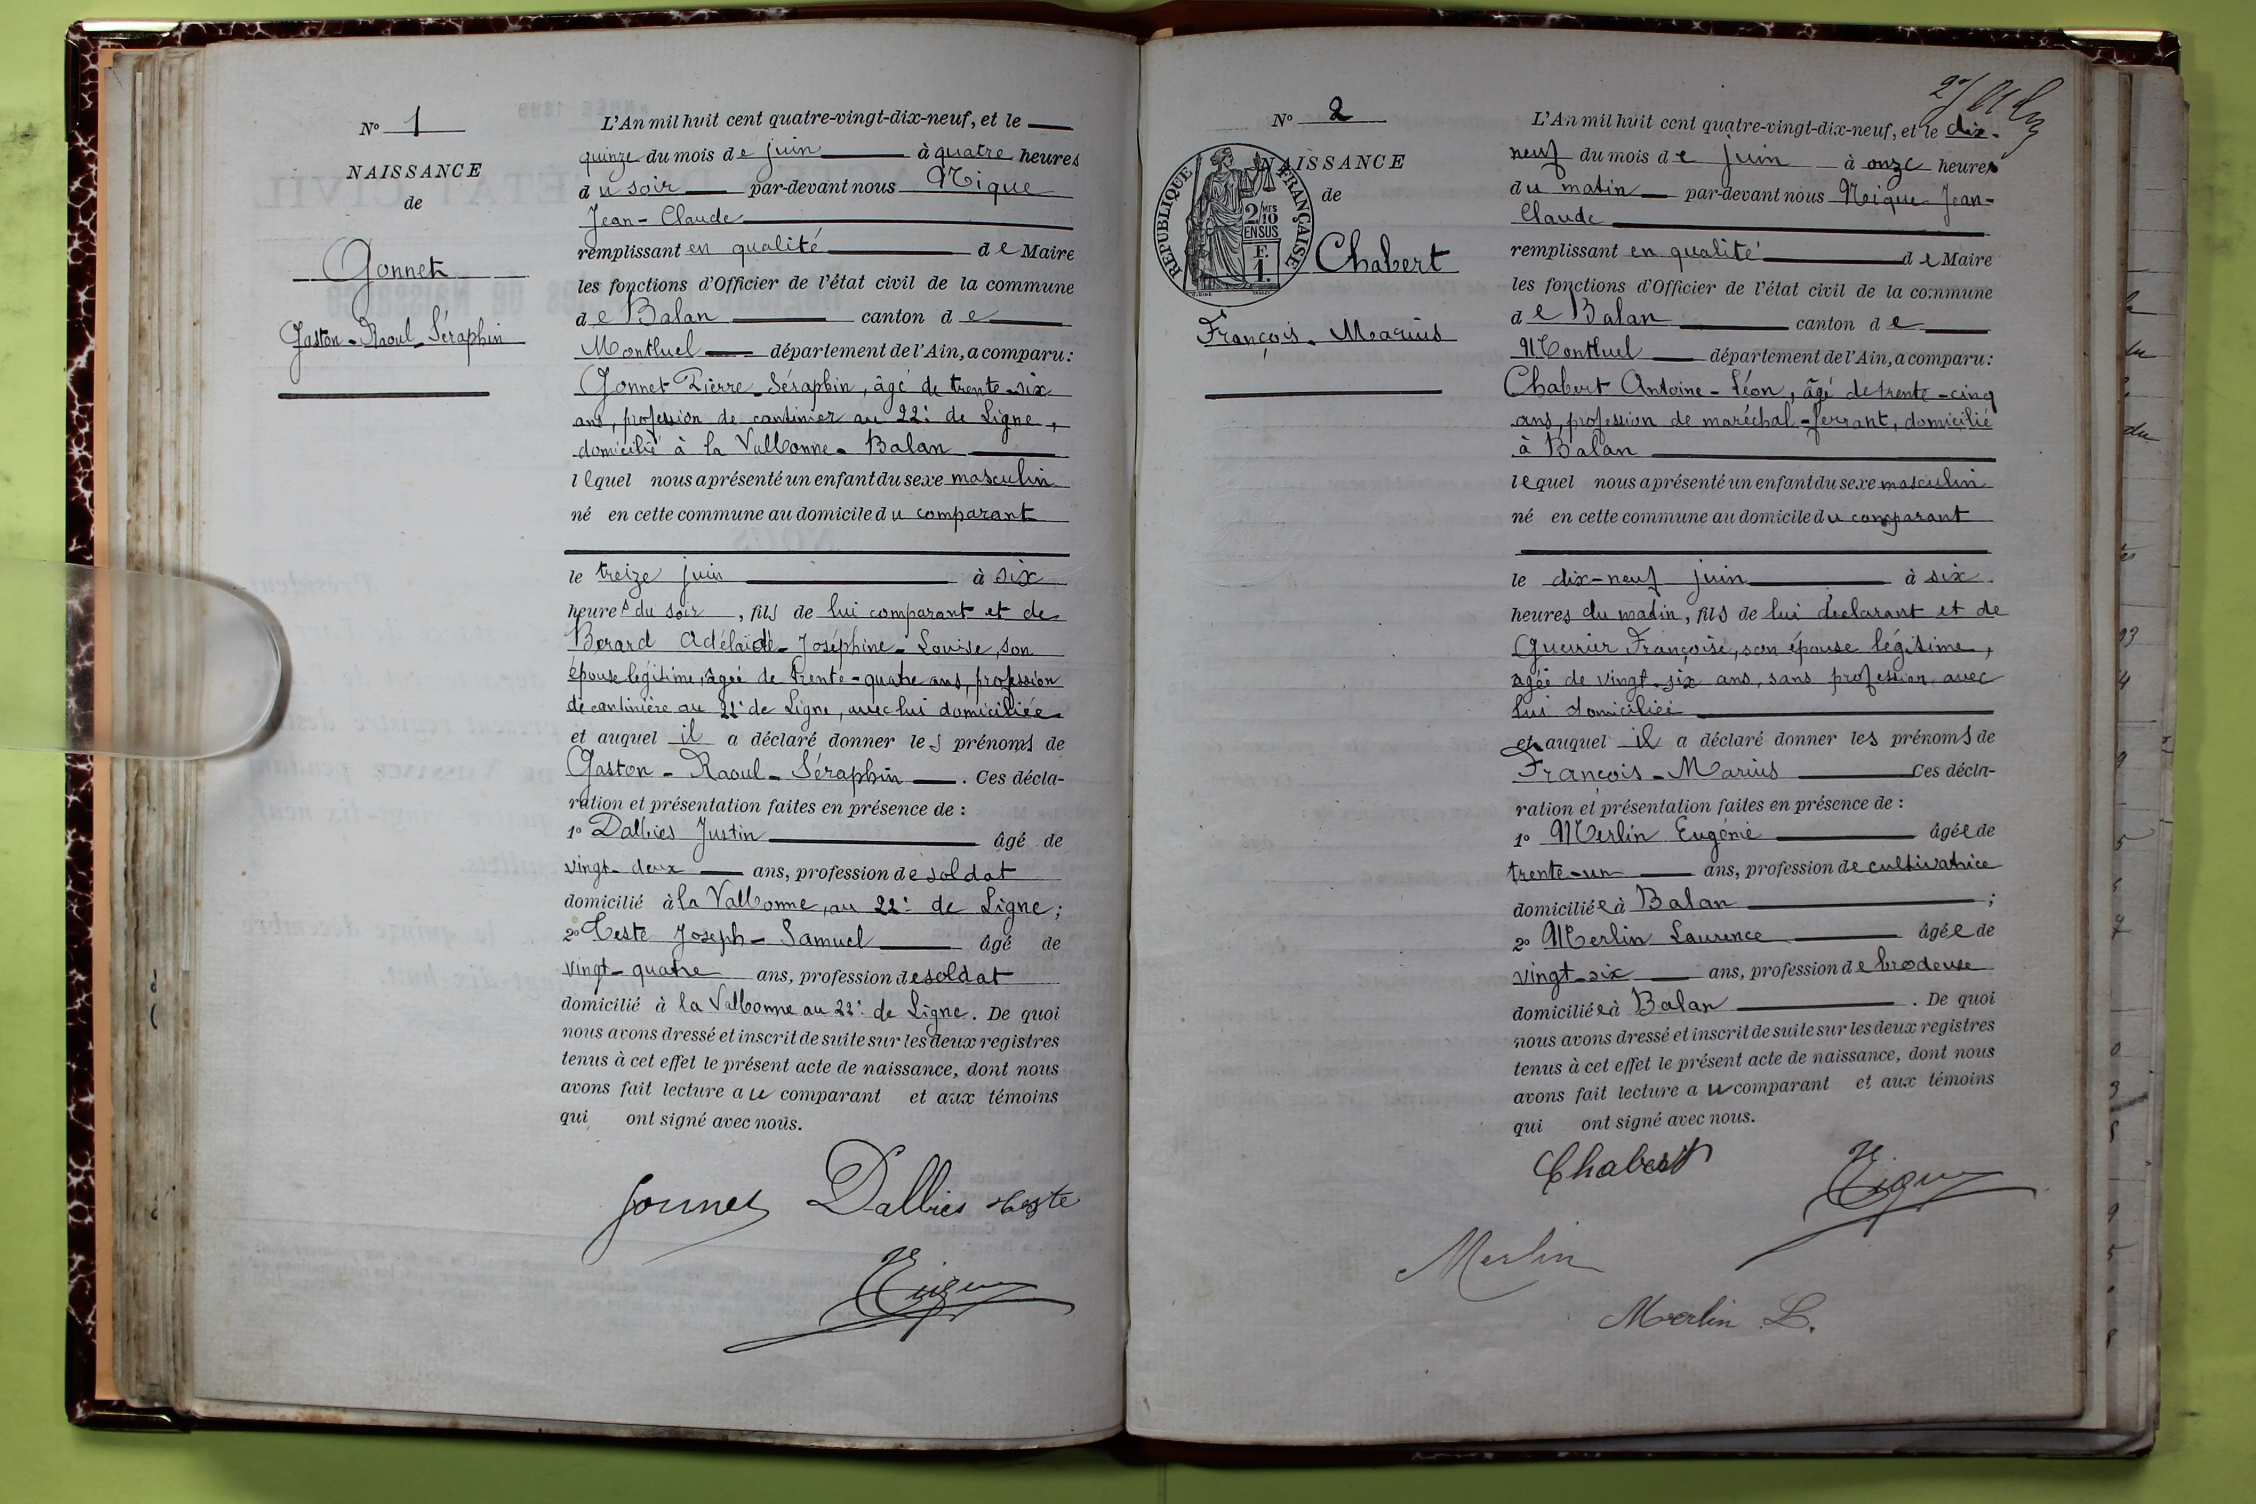 N° 1
NAISSANCE
de
Gonnet
Gaston-Raoul-Séraphin
L'An mil huit cent quatre-vingt-dix-neuf, et le
quinze du mois de juin à quatre heures
du soir par-devant nous Nique
Jean-Claude
remplissant en qualité de Maire
les fonctions d'Officier de l'état civil de la commune
de Balan canton de
Montluel département de l'Ain, a comparu:
Gonnet Pierre-Séraphin, âgé de trente-six
ans, profession de cantinier au 22e de Ligne,
domicilié à la Valbonne-Balan
lequel nous a présenté un enfant du sexe masculin
né en cette commune au domicile du comparant
le treize juin à six
heures du soir, fils de lui comparant et de
Berard Adélaïde-Joséphine-Louise, son
épouse légitime, âgée de trente-quatre ans, profession
de cantinière au 22e de Ligne, avec lui domiciliée
et auquel il a déclaré donner les prénoms de
Gaston-Raoul-Séraphin. Ces décla-
ration et présentation faites en présence de :
1° Dalbies Justin âgé de
vingt-deux ans, profession de soldat
domicilié à la Valbonne, au 22e de Ligne;
2° Teste Joseph-Samuel âgé de
vingt-quatre ans, profession de soldat
domicilié à la Valbonne au 22e de Ligne. De quoi
nous avons dressé et inscrit de suite sur les deux registres
tenus à cet effet le présent acte de naissance, dont nous
avons fait lecture au comparant et aux témoins
qui ont signé avec nous.
Gonnet Dalbies Teste
Nique
N° 2
NAISSANCE
de
RÉPUBLIQUE FRANÇAISE
2/10 MES
EN SUS
F.
1.
Chabert
François-Marius
L'An mil huit cent quatre-vingt-dix-neuf, et le dix-
neuf du mois de juin à onze heures
du matin par-devant nous Nique Jean-
Claude
remplissant en qualité de Maire
les fonctions d'Officier de l'état civil de la commune
de Balan canton de
Montluel département de l'Ain, a comparu:
Chabert Antoine-Léon, âgé de trente-cinq
ans, profession de maréchal-ferrant, domicilié
à Balan
lequel nous a présenté un enfant du sexe masculin
né en cette commune au domicile du comparant
le dix-neuf juin à six
heures du matin, fils de lui déclarant et de
Guerrier Françoise, son épouse légitime,
agée de vingt-six ans, sans profession avec
lui domiciliée
et auquel il a déclaré donner les prénoms de
François-Marius Ces décla-
ration et présentation faites en présence de :
1° Merlin Eugénie âgée de
trente-un ans, profession de cultivatrice
domiciliée à Balan ;
2° Merlin Laurence âgée de
vingt-six ans, profession de brodeuse
domiciliée à Balan. De quoi
nous avons dressé et inscrit de suite sur les deux registres
tenus à cet effet le présent acte de naissance, dont nous
avons fait lecture au comparant et aux témoins
qui ont signé avec nous.
Chabert Nique
Merlin
Merlin L.